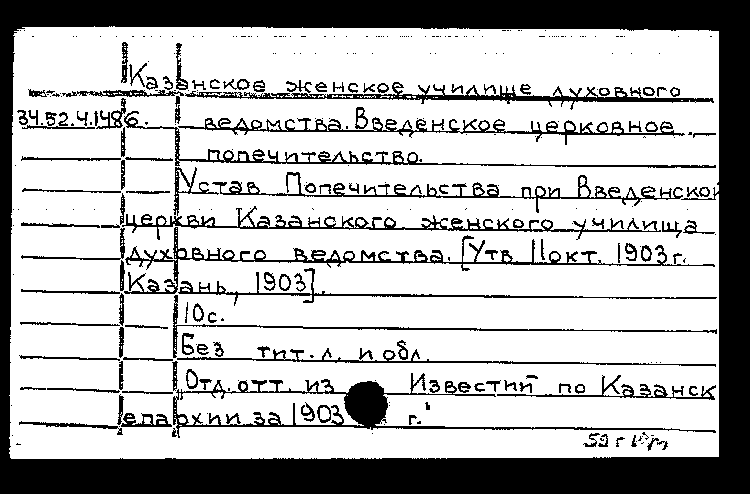 Казанское женское училище духовного
34.52.4.1486. ведомства. Введенское церковное
попечительство.
Устав Попечительства при Введенской
церкви Казанского женского училища
духовного ведомства. [Утв 11 окт. 1903 г.
Казань, 1903].
10с.
Без тит. л. и обл.
Отд. отт. из Известий по Казанск
епархии за 1903 г.
59 г